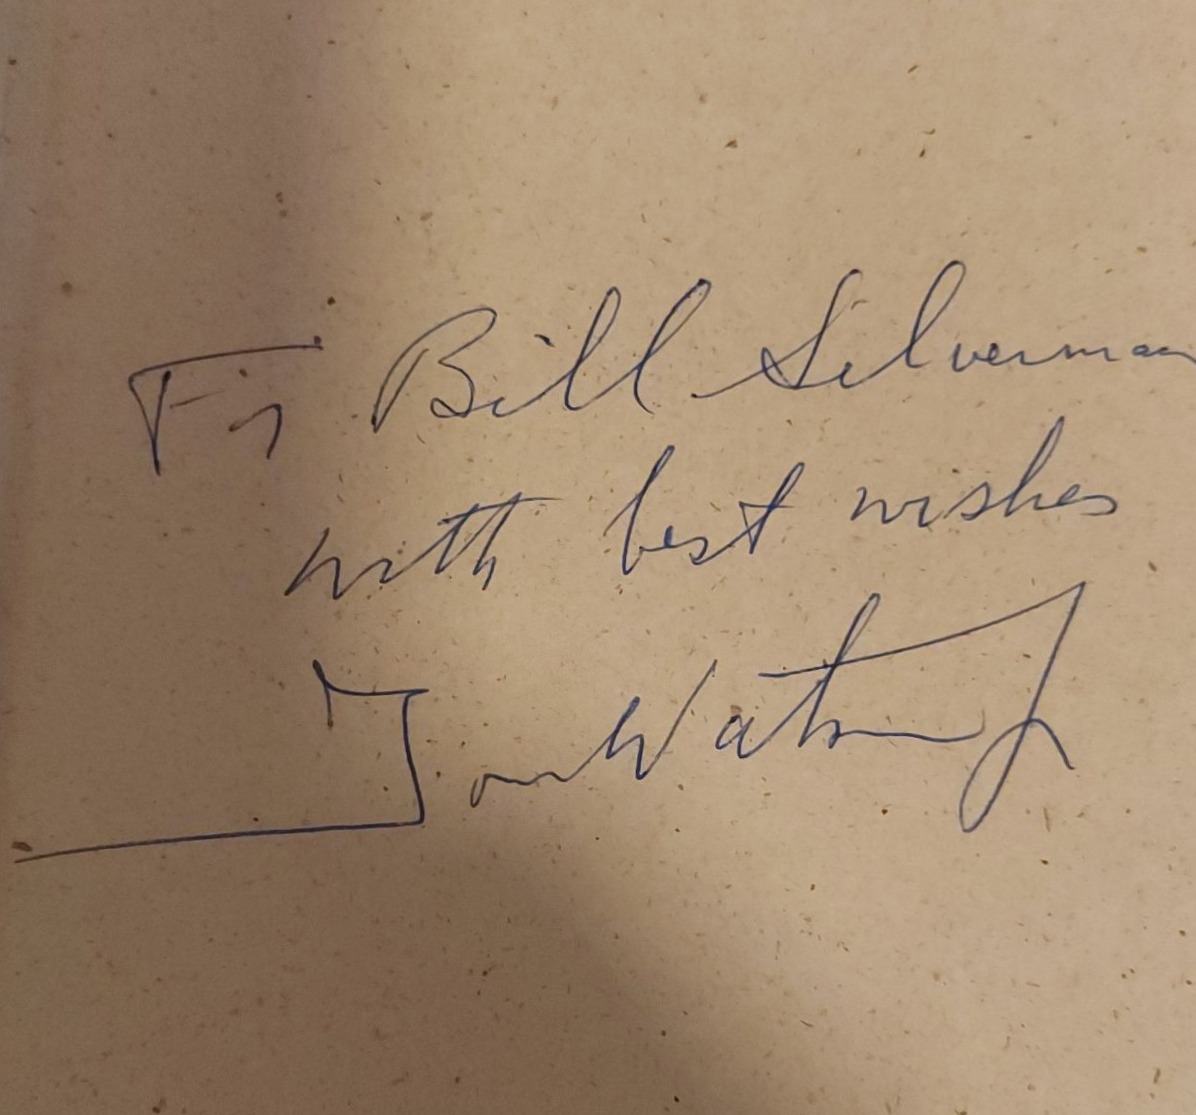 For Bill Silverman
with best wishes
Tom Watson Jr